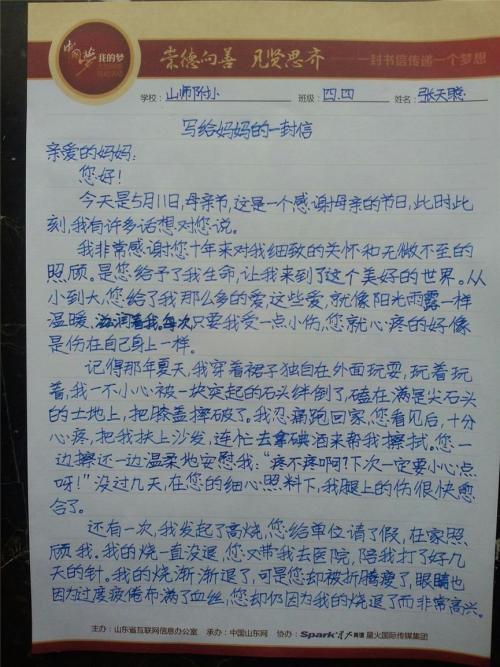 中国梦 我的梦
崇德向善 见贤思齐——一封书信传递一个梦想
学校：山师附小 班级：四.四 姓名：张天聪
写给妈妈的一封信
亲爱的妈妈：
您好！
今天是5月11日，母亲节，这是一个感谢母亲的节日，此时此
刻，我有许多话想对您说。
我非常感谢您十年来对我细致的关怀和无微不至的
照顾。是您给予了我生命，让我来到了这个美好的世界。从
小到大，您给了我那么多的爱，这些爱，就像阳光雨露一样
温暖、滋润着我。每次只要我受一点小伤，您就心疼的好像
是伤在自己身上一样。
记得那年夏天，我穿着裙子独自在外面玩耍，玩着玩
着，我一不小心被一块突起的石头绊倒了，磕在满是尖石头
的土地上，把膝盖摔破了。我忍痛跑回家，您看见后，十分
心疼，把我扶上沙发，连忙去拿碘酒来帮我擦拭。您一
边擦还一边温柔地安慰我：“疼不疼啊？下次一定要小心点
呀！”没过几天，在您的细心照料下，我腿上的伤很快愈
合了。
还有一次，我发起了高烧，您给单位请了假，在家照
顾我。我的烧一直没退，您又带我去医院，陪我打了好几
天的针。我的烧渐渐退了，可是您却被折腾瘦了，眼睛也
因为过度疲倦布满了血丝，您却仍因为我的烧退了而非常高兴。
主办：山东省互联网信息办公室 承办：中国山东网 协办：Spark星火英语 星火国际传媒集团